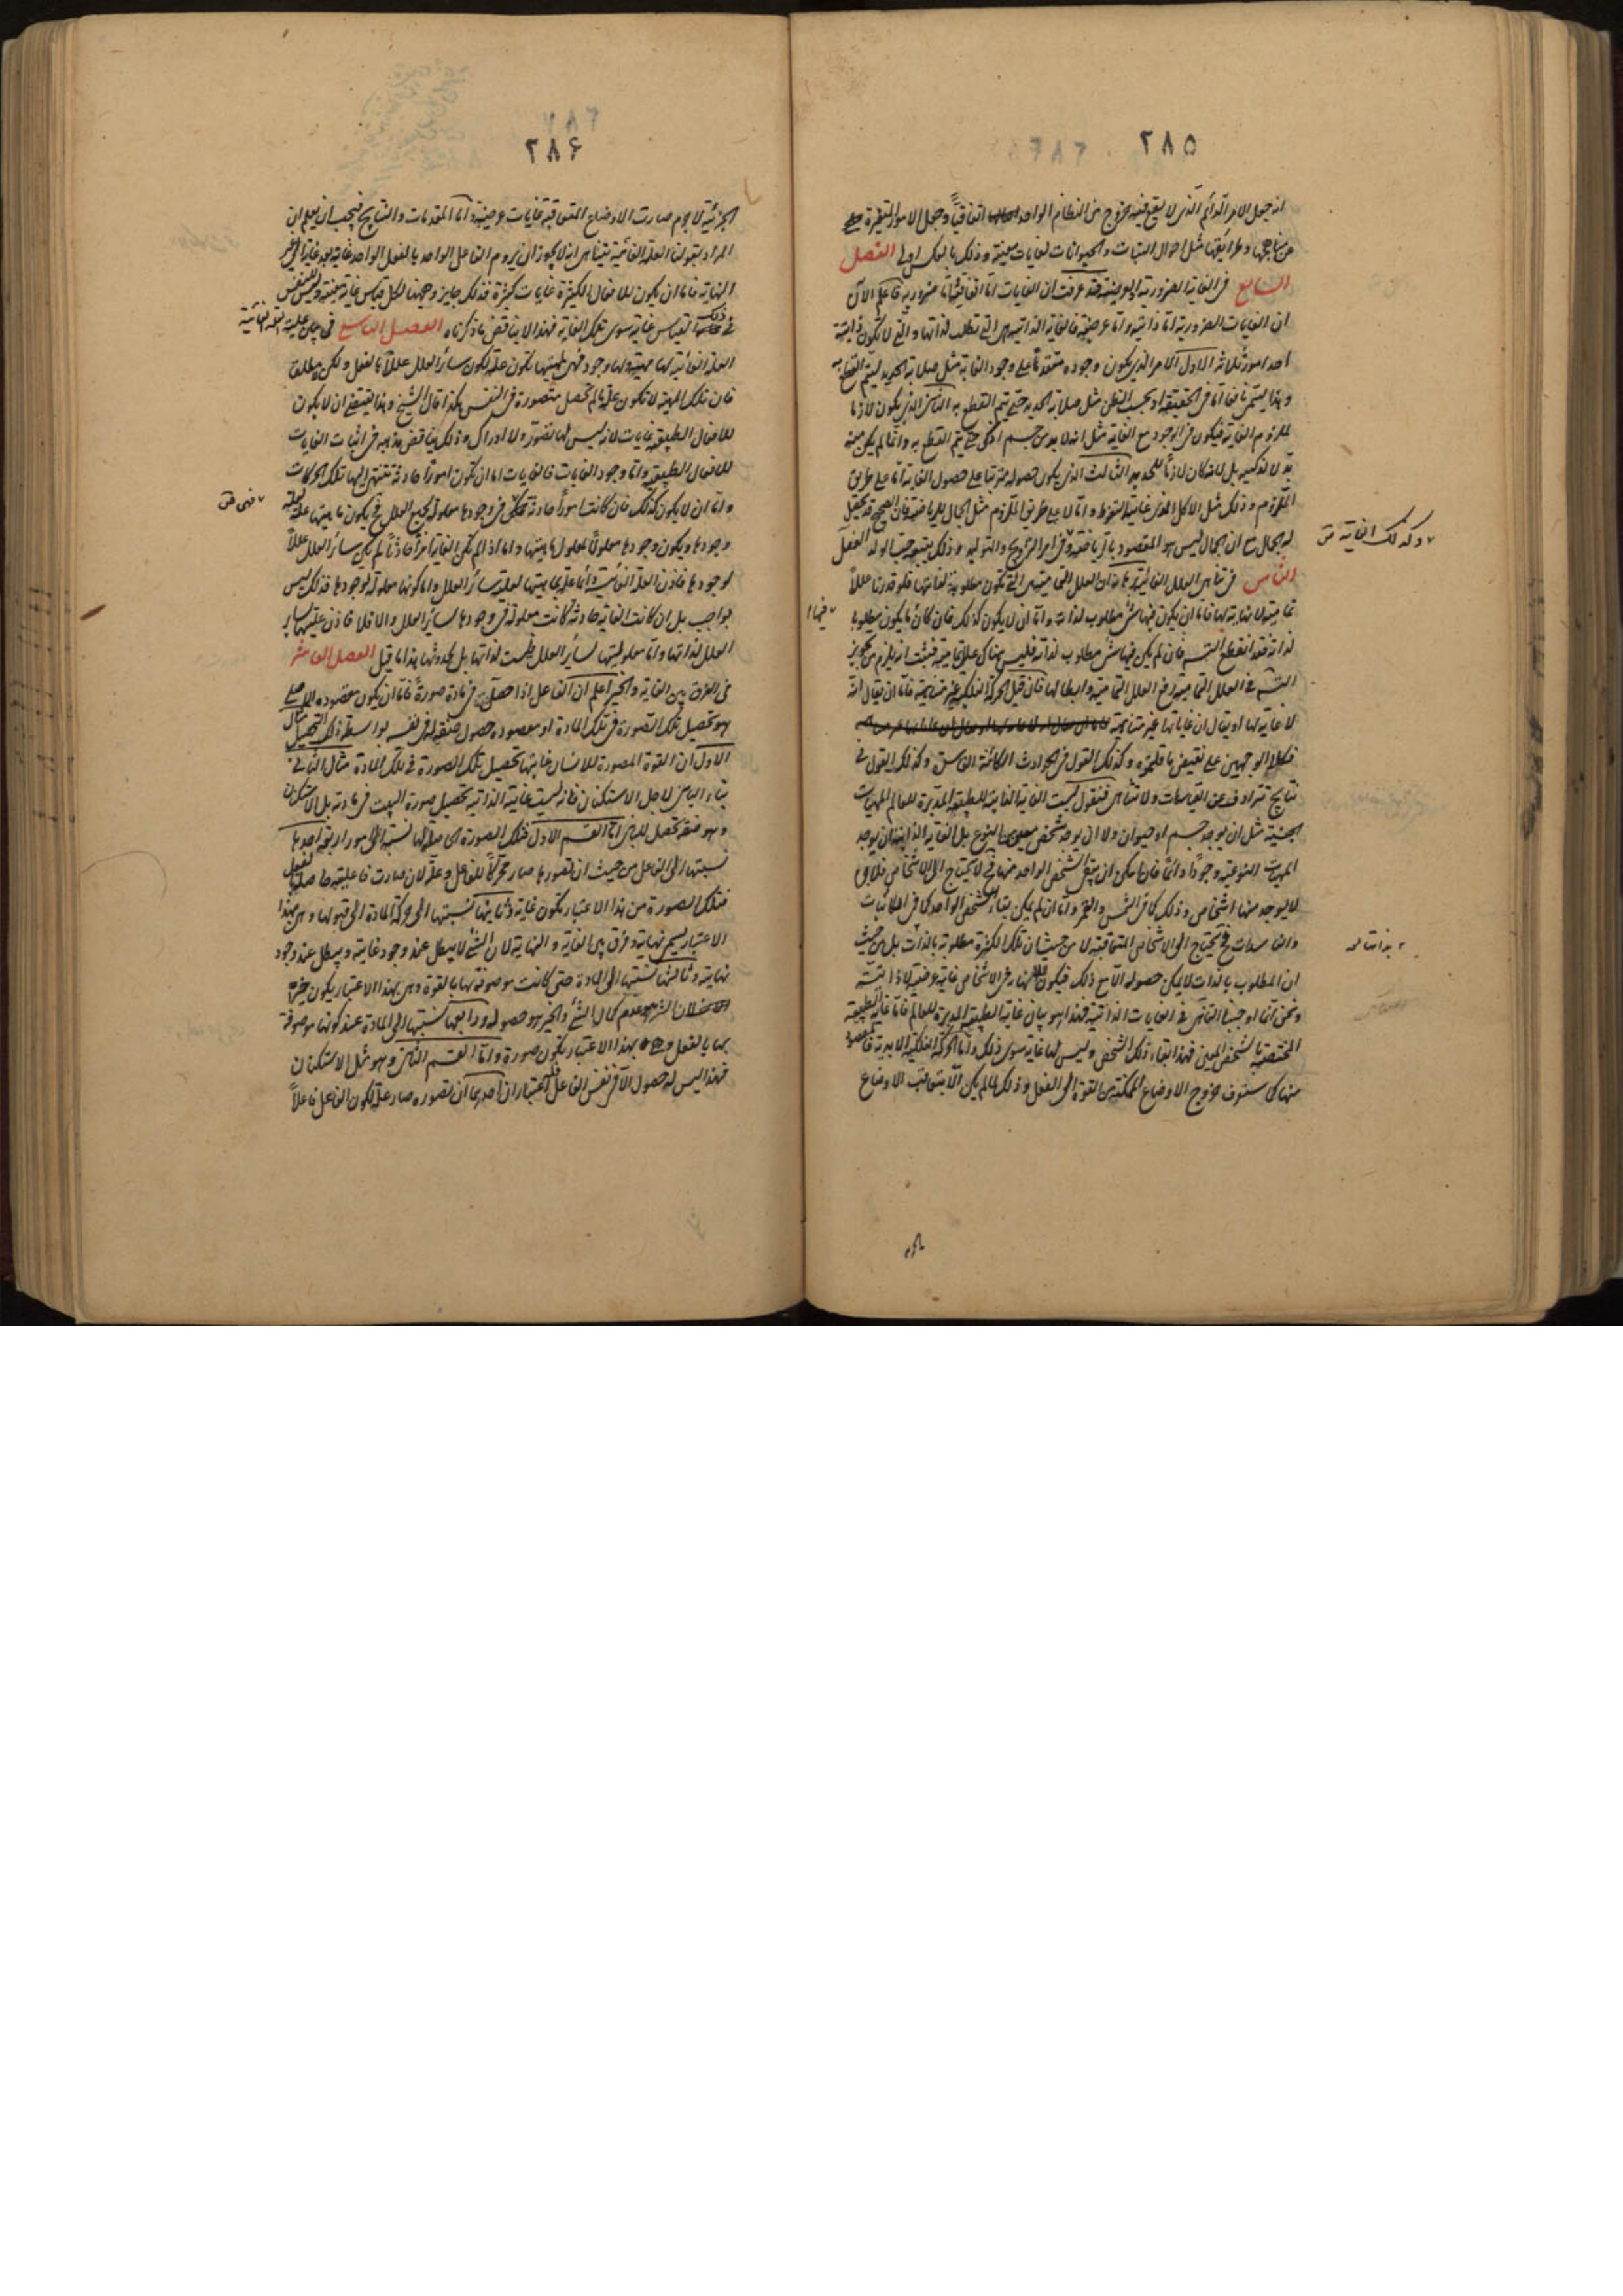 ٢٨٥
انه جعل الامر الدائم الذى لا يقع فيه خروج عن النظام الواحد اتفاقياً وجعل الامور المتغيرة
عن مناهجها وطرائقها مثل احوال النبات والحيوانات لغايات معينة وذلك بالعكس اولى الفصل
السابع فى الغاية الضرورية والعرضية قد عرفت ان الغايات اما اتفاقية واما ضرورية فاعلم الآن
ان الغايات الضرورية اما ذاتية واما عرضية فالغاية الذاتية هى التى تطلب لذاتها والتى لا تكون ذاتية
احد امور ثلاثة الاول الامر الذى يكون وجوده متقدما على وجود الغاية مثل صلابة الحديد ليتم القطع به
وهذا يسمى نافعا اما فى الحقيقة او بحسب الظن مثل صلابة الحديد حتى يتم القطع به الثانى الذى يكون لازما
لملزوم الغاية فيكون فى الوجود مع الغاية مثل انه لابد من جسم ادكن حتى يتم القطع به وانما لم يكن منه
بد لا لدكنته بل لانه كان لازماً للحديد الثالث الذى يكون حصوله مترتبا على حصول الغاية اما على طريق
اللزوم وذلك مثل الاكل الذى غايته التغوط واما لا على طريق اللزوم مثل الجمال للرياضة فان الصحة قد يحصل
له الجمال مع ان الجمال ليس هو المقصود بالرياضة وكذلك الغاية فى امر التزويج والتوليد وذلك يتبعه حب الولد الفصل
الثامن فى تناهى العلل الغائية العلل التمامية هى التى تكون مطلوبة لغاتها فلو قدرنا عللاً
تمامية لا نهاية لها فاما ان يكون فيها شئ مطلوب لذاته واما ان لا يكون كذلك فان كان فيها ما يكون مطلوبا
لذاته فقد انقطع التسلسل فان لم يكن فيها شئ مطلوب لذاته فليس هناك علة تمامية فيثبت انه يلزم من تجويز
التسلسل فى العلل التمامية رفع العلل التمامية وابطالها فان قيل الحركة الفلكية غير متناهية فاما ان يقال انه
لا غاية لها او يقال ان غاياتها غير متناهية
فكلا الوجهين على نقيض ما قلتموه وكذلك القول فى الحوادث الكائنة الفاسدة وكذلك القول فى
نتايج تترادف عن القياسات ولا تتناهى فنقول ليست الغاية الذاتية للطبيعة المدبرة للعالم المهيات
الجنسية مثل ان يوجد جسم او حيوان ولا ان يوجد شخص من النوع بل الغاية الذاتية ان يوجد
المهيات النوعية وجوداً دائماً فان امكن ان يبقى الشخص الواحد منها فح لا يحتاج الى الاشخاص فلا
لا يوجد منها اشخاص وذلك كما فى الشمس والقمر واما ان لم يكن بقاء الشخص الواحد كما فى الكائنات
والفاسدات فح يحتاج الى الاشخاص المتعاقبة لا من حيث ان تلك الكثرة مطلوبة بالذات بل من حيث
ان المطلوب بالذات لا يمكن حصوله الا مع ذلك فيكون لا نهاية الاشخاص غاية عرضية لا ذاتية
ونحن انما اوجبنا التناهى فى الغايات الذاتية فهذا هو بيان غاية الطبيعة المدبرة للعالم فاما غاية الطبيعة
المختصة بالشخص المعين فهذا بقاء ذلك الشخص وليس لها غاية سوى ذلك واما الحركة الفلكية الابدية فالمقصود
منها كما ستعرف خروج الاوضاع الممكنة من القوة الى الفعل وذلك لما لم يكن الا بتعاقب الاوضاع
٧ وكذلك الغاية ش
٧ فيها ١
٢ بذاتها
٢٨۶
الجزئية لا جرم صارت الاوضاع المتعاقبة غايات عرضية واما المقدمات والنتايج فيجب ان يعلم ان
المراد بقولنا العلة الغائية تتناهى انه لا يجوز ان يروم الفاعل الواحد بالفعل الواحد غاية بعد غاية الى غير
النهاية فاما ان يكون للافعال الكثيرة غايات كثيرة فذلك جايز وههنا لكل قياس غاية معينة وليس للنفس
فى ذلك القياس غاية سوى تلك الغاية فهذا لا يناقض ما ذكرناه الفصل التاسع فى بيان علية العلة الغائية
العلة الغائية لها مهية ولها وجود فهى بمهيتها تكون علة لكون سائر العلل عللاً بالفعل ولكن مطلق
فان تلك المهية لا تكون علة ما لم تحصل متصورة فى النفس هكذا قال الشيخ وهذا يقتضى ان لا يكون
للافعال الطبيعية غايات لانه ليس لها تصور ولا ادراك وذلك يناقض مذهبه فى اثبات الغايات
للافعال الطبيعية واما وجود الغايات فالغايات اما ان تكون امورا حادثة تنتهى اليها تلك الحركات
واما ان لا يكون كذلك فان كانت اموراً حادثة فهى فى وجودها معلولة لجميع العلل فح يكون ماهيتها علة لعلة
وجودها ويكون وجودها معلولاً لمعلول ماهيتها واما اذا لم تكن الغاية امراً حادثاً لم يكن سائر العلل عللاً
لوجودها فاذن العلة الغائية واما علة ماهيتها لعلية سائر العلل واما كونها معلولة لوجودها فذلك ليس
بواجب بل ان كانت الغاية حادثة كانت معلولة فى وجودها لسائر العلل والا فلا فاذن عليتها لسائر
العلل لذاتها واما معلوليتها لسائر العلل فليست لذاتها بل لحدوثها هذا ما قيل الفصل العاشر
فى الفرق بين الغاية والخير اعلم ان الفاعل اذا حصل فى مادة صورةً فاما ان يكون مقصوده الاصلى
هو تحصيل تلك الصورة فى تلك المادة او مقصوده حصول صفة له فى نفسه بواسطة ذلك التحصيل مثال
الاول ان القوة المصورة للانسان غايتها تحصيل تلك الصورة فى تلك المادة مثال الثانى
بناء البانى لاجل الاستكنان فانه ليست غايته الذاتية تحصيل صورة البيت فى مادته بل الاستكنان
وهو صفة تحصل للبانى اما القسم الاول فتلك الصورة الحاصلة لها نسبة الى امور اربعة احدها
نسبتها الى الفاعل من حيث ان تصورها صار محركاً للفاعل وعلة لان صارت فاعليته حاصلة بالفعل
فتلك الصورة من هذا الاعتبار تكون غاية وثانيها نسبتها الى حركة المادة الى قبولها وهى بهذا
الاعتبار تسمى نهاية وفرق بين الغاية والنهاية لان الشئ لا يبطل عند وجود غايته ويبطل عند وجود
نهايته وثالثها نسبتها الى المادة حتى كانت موصوفة بها بالقوة وهى بهذا الاعتبار يكون خيرا
لان الشر هو عدم كمال الشئ والخير هو حصوله ورابعها نسبتها الى المادة عند كونها موصوفة
بها بالفعل وهى بهذا الاعتبار تكون صورة واما القسم الثانى وهو مثل الاستكنان
فهذا ليس له حصول الا فى نفس الفاعل فله اعتباران احدهما ان تصوره صار علة لكون الفاعل فاعلاً
٧ فهى ش